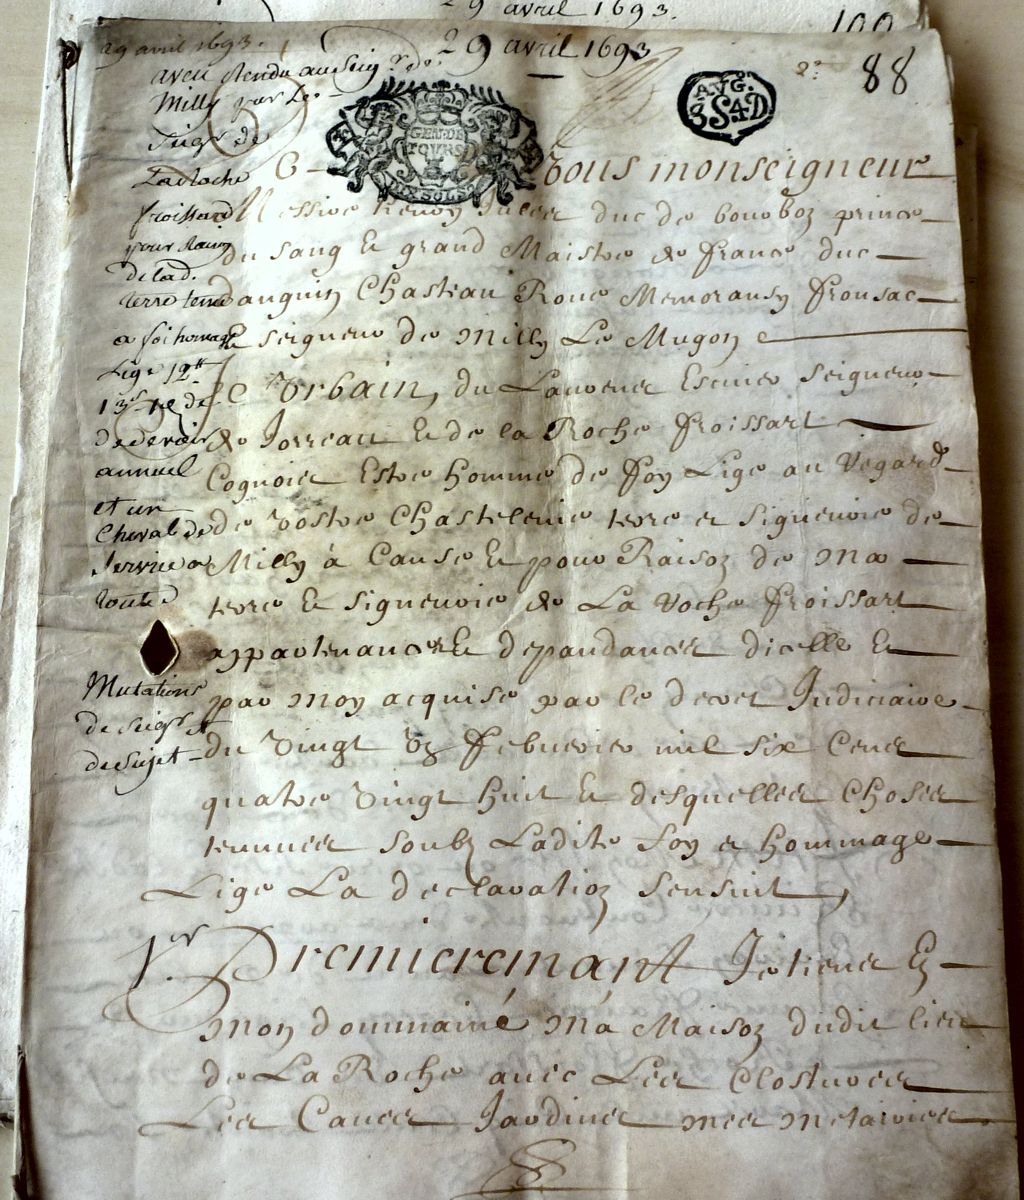 29 avril 1693.
100
29 avril 1693.
29 avril 1693
2e
88
aveu Rendu au Seigr. de
Milly par Le
Seigr de
La Roche
froissard
pour Raison
de lad.
terre tenue
a foi hommage
Lige 12tt
13s 4d de
de devoir
annuel
et un
Cheval de
Service a
Mutations
de Seigr et
de Sujet
GEN. DE
TOURS
AVG.
3S4D
Vous monseigneur
Messire henry Jules duc de bourbon prince
du sang & grand Maistre de france duc
danguin Chasteau Roux Memoransy fronsac
& seigneur de Milly Le Mugon
Je Urbain, du Laurens Escuier Seigneur
de Jorreau & de la Roche froissart
Cognois Estre homme de foy Lige au Regard
de Vostre Chastelenie terre et Signeurie de
Milly à Cause & pour Raison de Ma
terre & signeurie de La Roche froissart
appartenances & depandances dicelle &
par moy acquise par le decret Judiciaire
du Vingt Six febvrier mil six Cens
quatre Vingt huit & desquelles Choses
tenues Soubz Ladite foy et hommage
Lige La declaration Sensuit,
1er. Premieremant Je tiens En
mon dommaine Ma Maison dudit lieu
de La Roche avec Les Clostures
Les Caves Jardins mes metairies